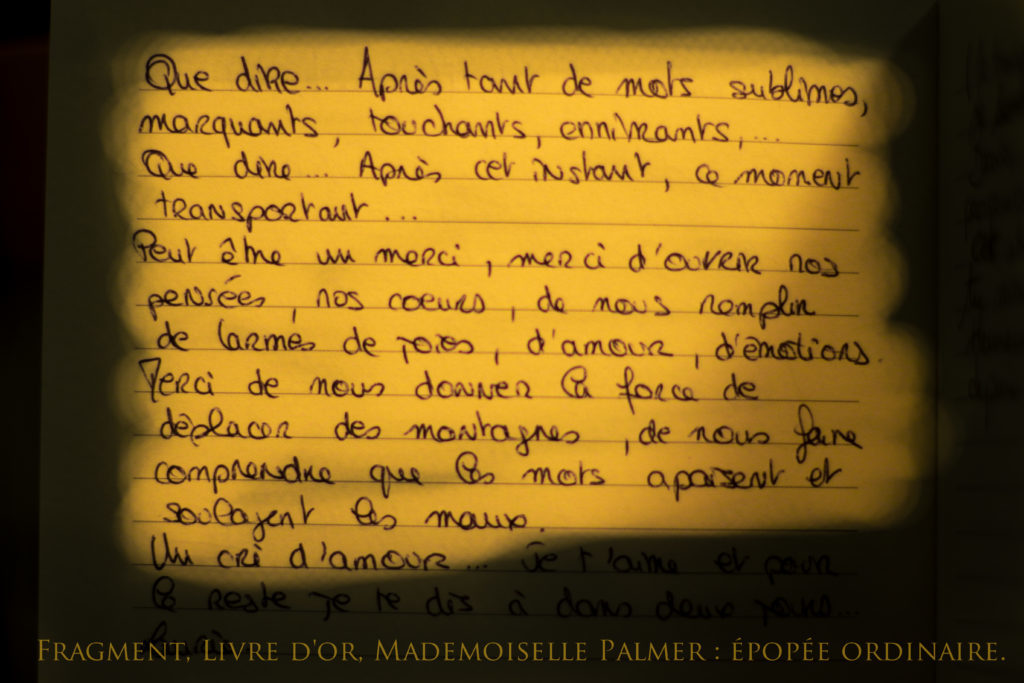 Que dire... Après tant de mots sublimes,
marquants, touchants, ennivrants,...
Que dire... Après cet instant, ce moment
transportant...
Peut être un merci, merci d'ouvrir nos
pensées, nos coeurs, de nous remplir
de larmes de joies, d'amour, d'émotions.
Merci de nous donner la force de
déplacer des montagnes, de nous faire
comprendre que les mots apaisent et
soulagent les maux.
Un cri d'amour... Je t'aime et pour
le reste je te dis à dans deux jours...
Fragment, Livre d'or, Mademoiselle Palmer : épopée ordinaire.